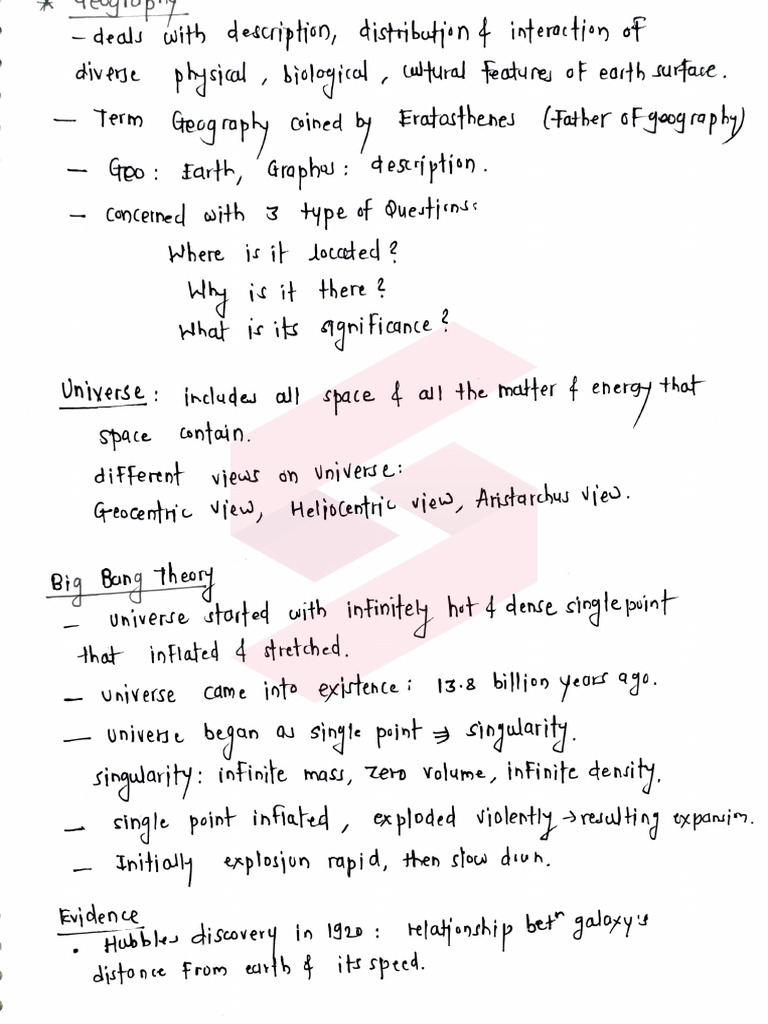 * Geography
- deals with description, distribution & interaction of
diverse physical, biological, cultural features of earth surface.
- Term Geography coined by Eratosthenes (Father of geography)
- Geo: Earth, Graphos: description.
- concerned with 3 type of Questions:
Where is it located?
Why is it there?
What is its significance?
Universe: includes all space & all the matter & energy that
space contain.
different views on universe:
Geocentric view, Heliocentric view, Aristarchus view.
Big Bang Theory
- universe started with infinitely hot & dense single point
that inflated & stretched.
- universe came into existence: 13.8 billion years ago.
- universe began as single point ⇒ singularity.
singularity: infinite mass, zero volume, infinite density.
- single point inflated, exploded violently → resulting expansion.
- Initially explosion rapid, then slow down.
Evidence
• Hubbles discovery in 1920: relationship betⁿ galaxy's
distance from earth & its speed.